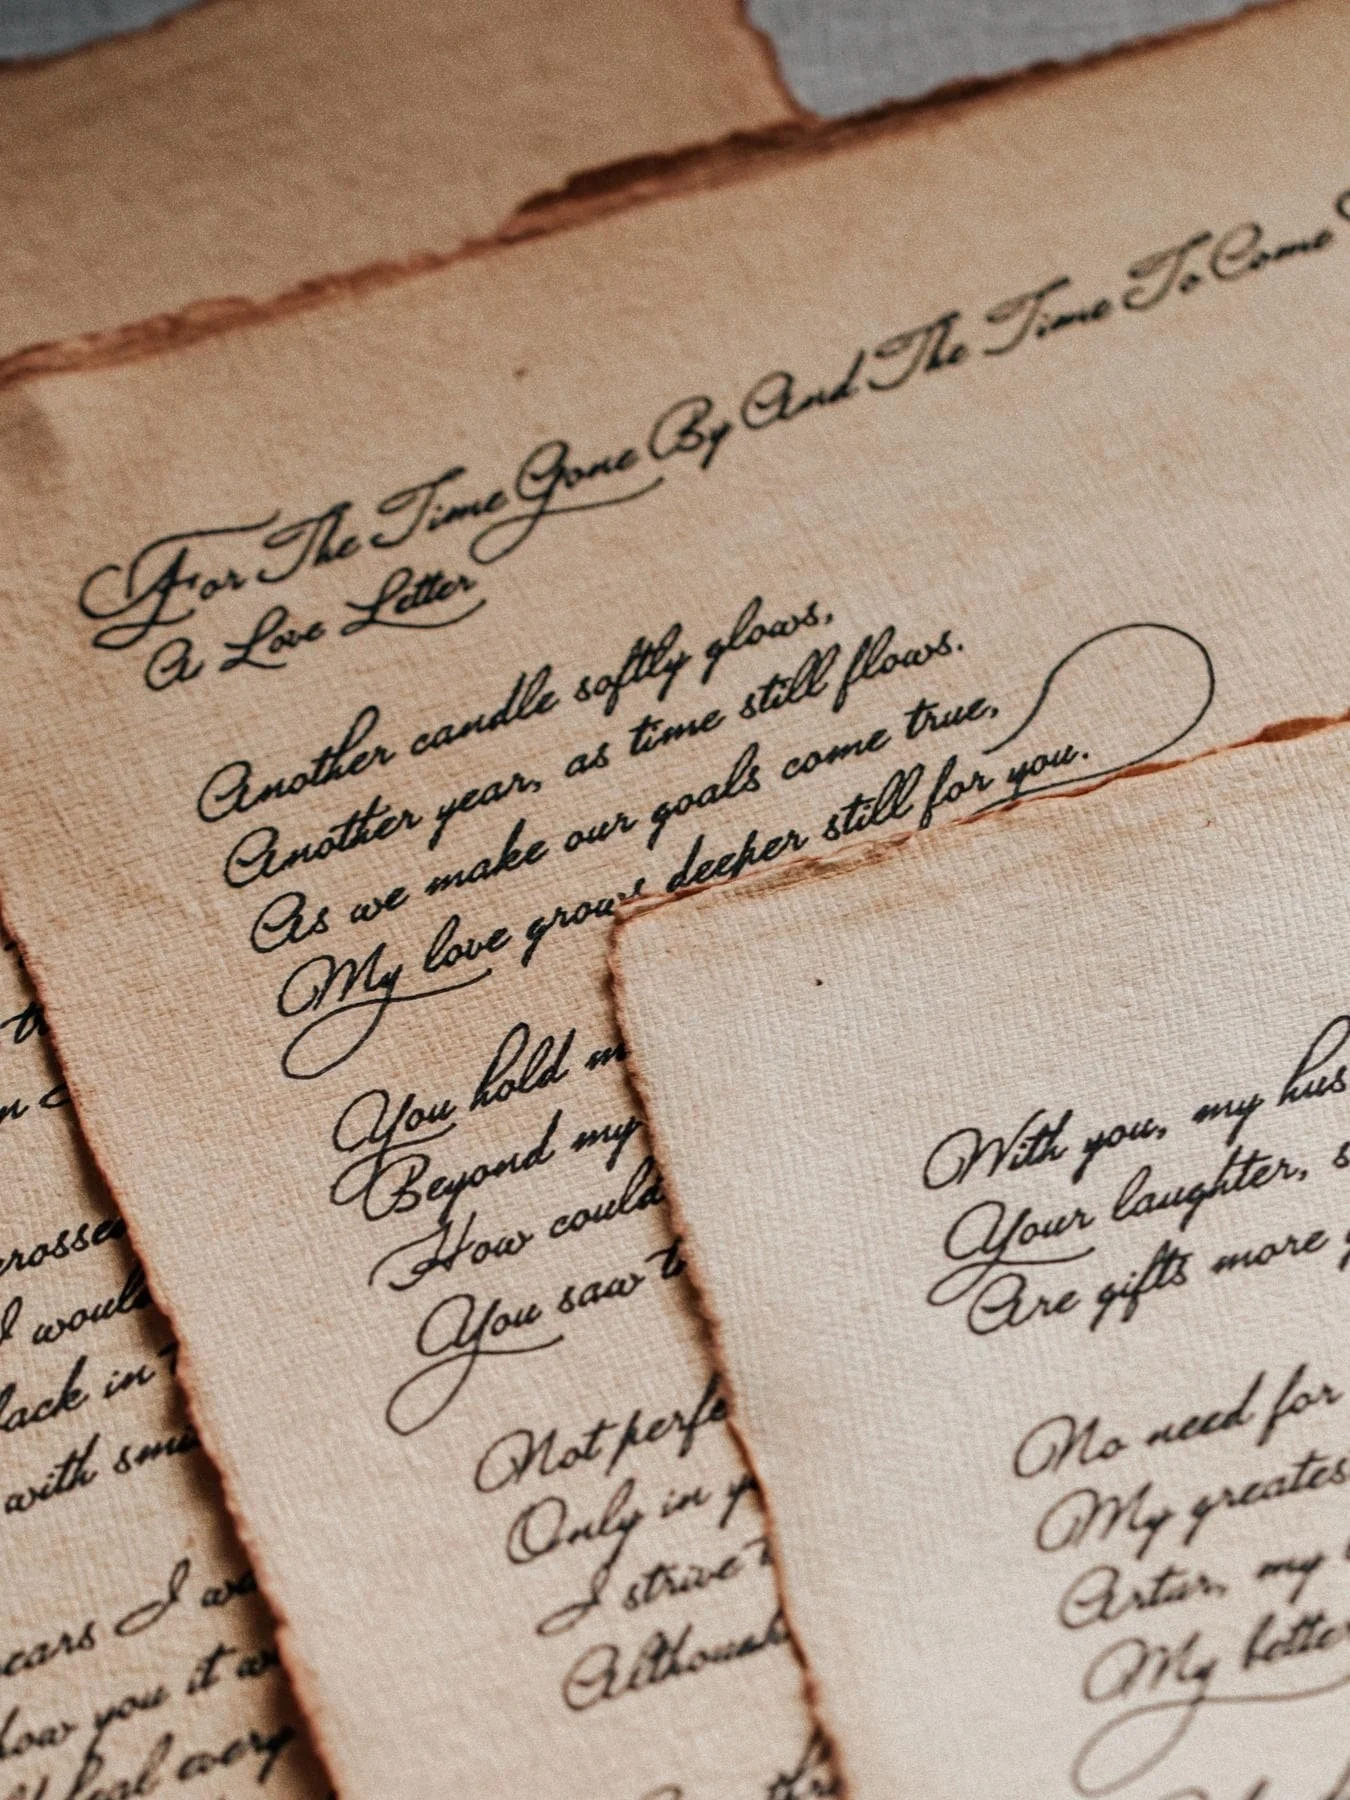 For The Time Gone By And The Time To Come
A Love Letter
Another candle softly glows,
Another year, as time still flows.
As we make our goals come true,
My love grows deeper still for you.
You hold
Beyond my
How could
You saw
Not perfe
Only in
I strive
Although
With you, my hus
Your laughter,
Are gifts more
No need for
My greates
Artur, my
My better
crosse
I would
back in
with sm
ears I
how you it
heal every